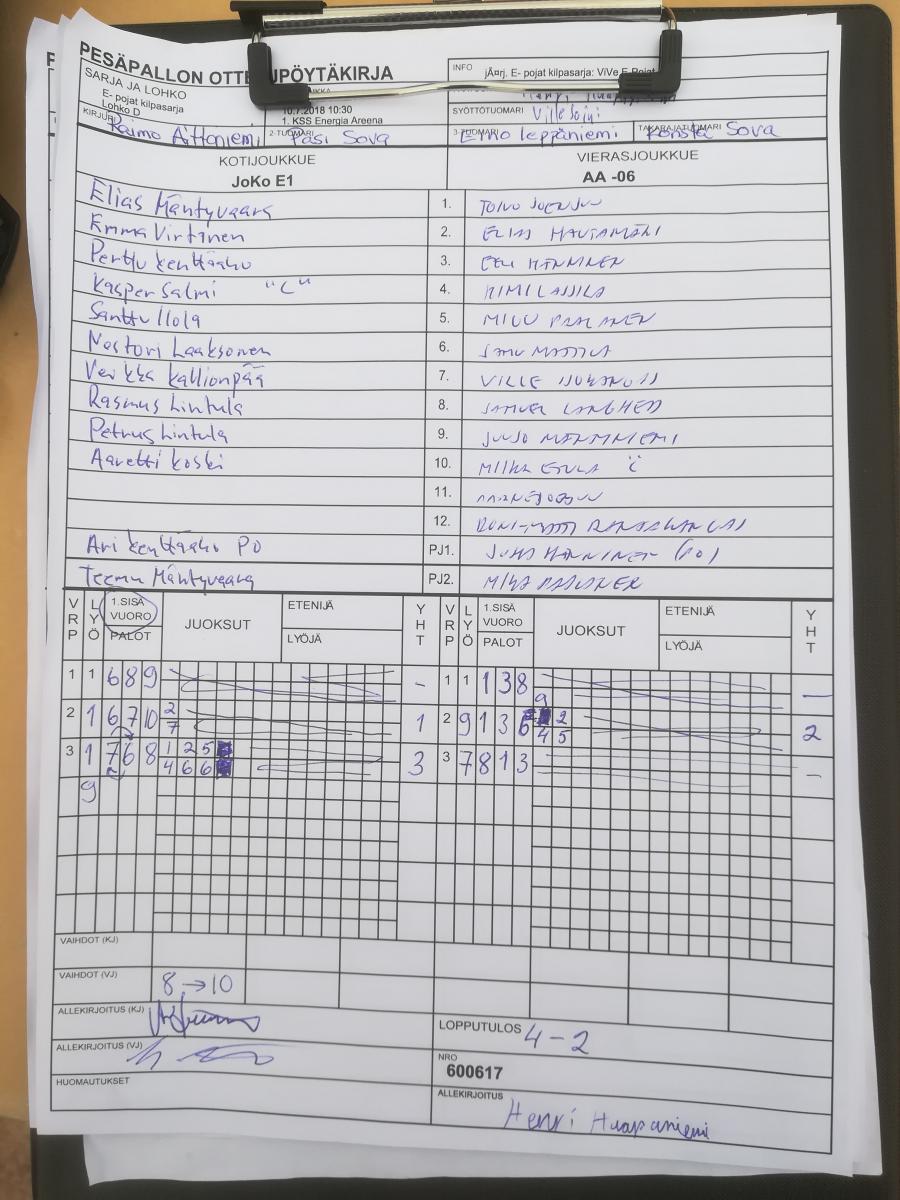 PESÄPALLON OTTE UPÖYTÄKIRJA
SARJA JA LOHKO
E- pojat kilpasarja
Lohko D
10.7.2018 10:30
1. KSS Energia Areena
INFO
jÃ¤rj. E- pojat kilpasarja: ViVe E-Pojat
SYÖTTÖTUOMARI
KIRJURI Raimo Aittoniemi
2-TUOMARI Pasi Sova
3-TUOMARI Erno Leppäniemi
TAKARAJATUOMARI Konsta Sova
KOTIJOUKKUE VIERASJOUKKUE
JoKo E1 AA -06
Elias Mäntyvaara 1. TOIVO JOENSUU
Emma Virtanen 2. ELIAS HAUTAMÄKI
Perttu Kenttäaho 3. EELI HÄNNINEN
Kasper Salmi "C" 4. KIMI LASSILA
Santtu Ilola 5. MILO PAALANEN
Nestori Laaksonen 6. SAMU MATTILA
Verikka Kallionpää 7. VILLE
Rasmus Lintula 8. SAMUEL LANGHED
Petrus Lintula 9. JUUSO
Aaretti Koski 10. MIIKA ESULA C
11.
12. RONI-
Ari Kenttäaho PO PJ1. JUHA HÄNNINEN (PO)
Teemu Mäntyvaara PJ2. MIKA PAALANEN
VRP LYÖ 1.SISÄ VUORO PALOT JUOKSUT ETENIJÄ LYÖJÄ YHT VRP LYÖ 1.SISÄ VUORO PALOT JUOKSUT ETENIJÄ LYÖJÄ YHT
1 1 6 8 9 - 1 1 1 3 8 —
2 1 6 7 10 2 7 1 2 9 1 3 6 9 4 2 5 2
3 1 7 6 8 1 2 5 4 6 6 3 3 7 8 1 3 -
9
VAIHDOT (KJ)
VAIHDOT (VJ) 8 → 10
ALLEKIRJOITUS (KJ)
LOPPUTULOS 4 - 2
ALLEKIRJOITUS (VJ)
NRO
600617
HUOMAUTUKSET
ALLEKIRJOITUS
Henri Haapaniemi